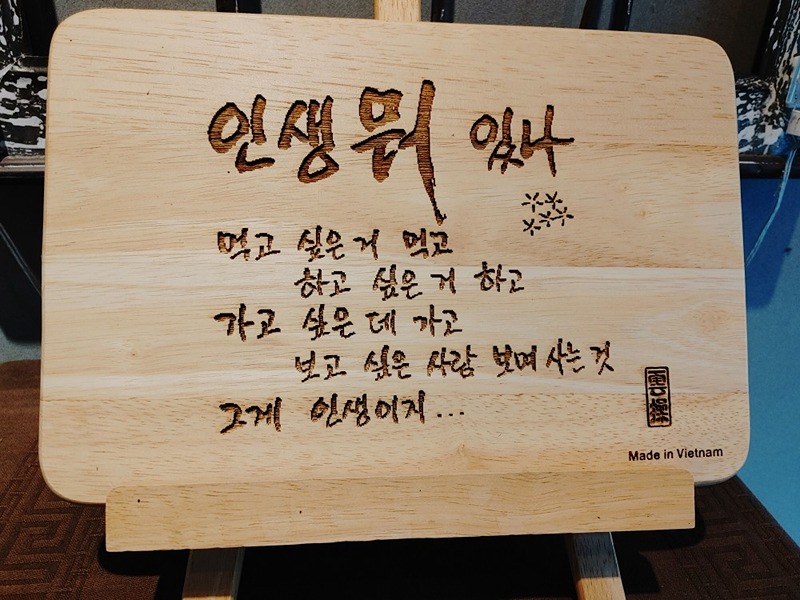 인생 뭐 있나
먹고 싶은거 먹고
하고 싶은거 하고
가고 싶은데 가고
보고 싶은 사람 보며 사는 것
그게 인생이지...
Made in Vietnam